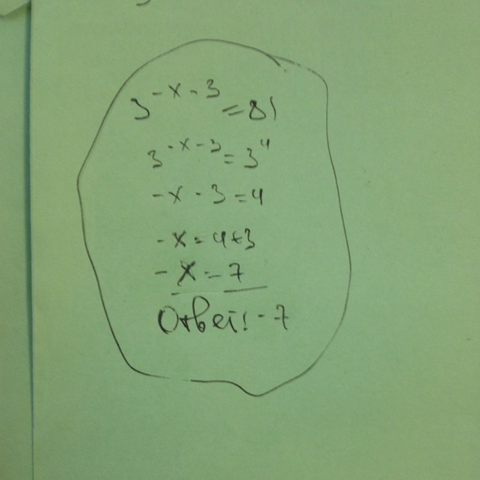 3^{-x-3}=81
3^{-x-3}=3^4
-x-3=4
-x=4+3
-x=7
Ответ: -7